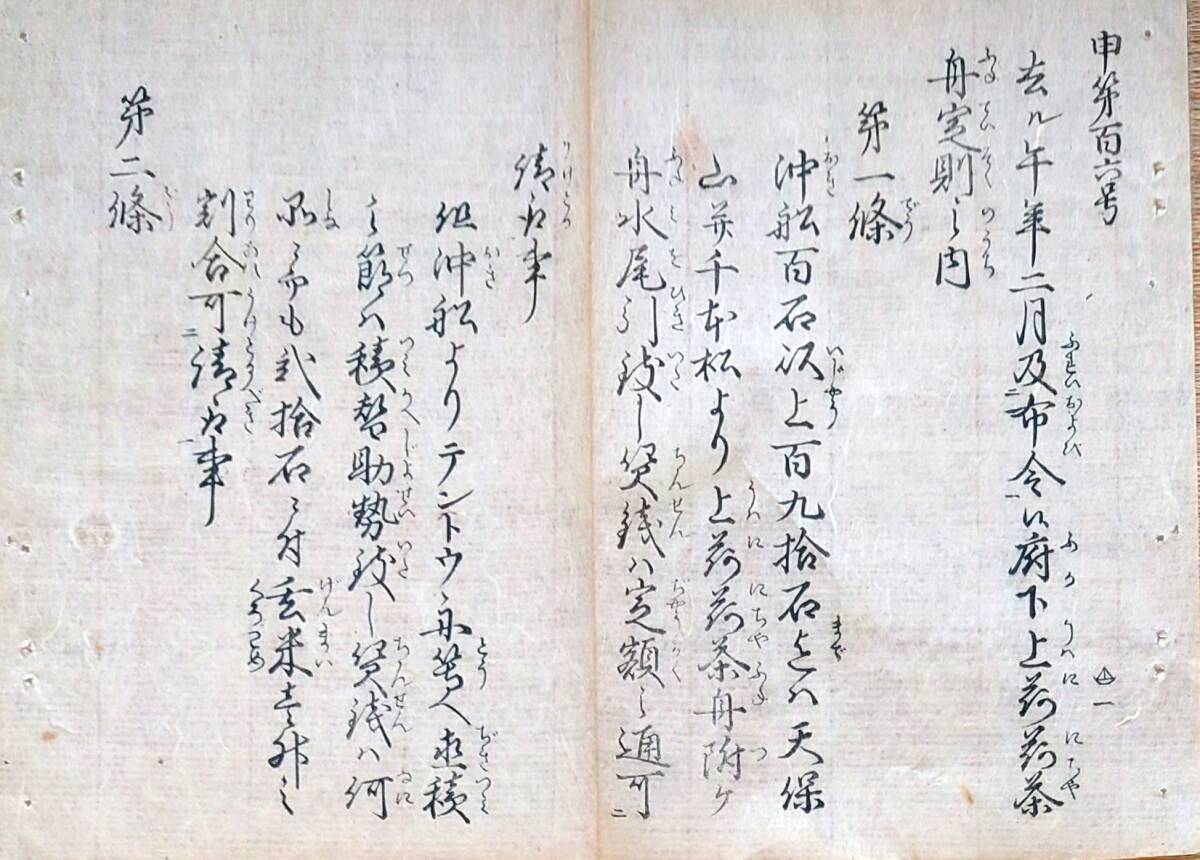 申第百六号
去ル午年二月及布令候府下上荷荷茶
舟定則之内
第一條
沖舩百石以上百九拾石迄ハ天保
山并千本松より上荷荷茶舟附ケ
舟水尾引致し賃銭ハ定額之通可
請取事
但沖舩よりテントウ舟等へ直積
之節ハ積替助勢致し賃銭ハ何
品ニ而も弐拾石ニ付玄米壱升之
割合可請取事
第二條